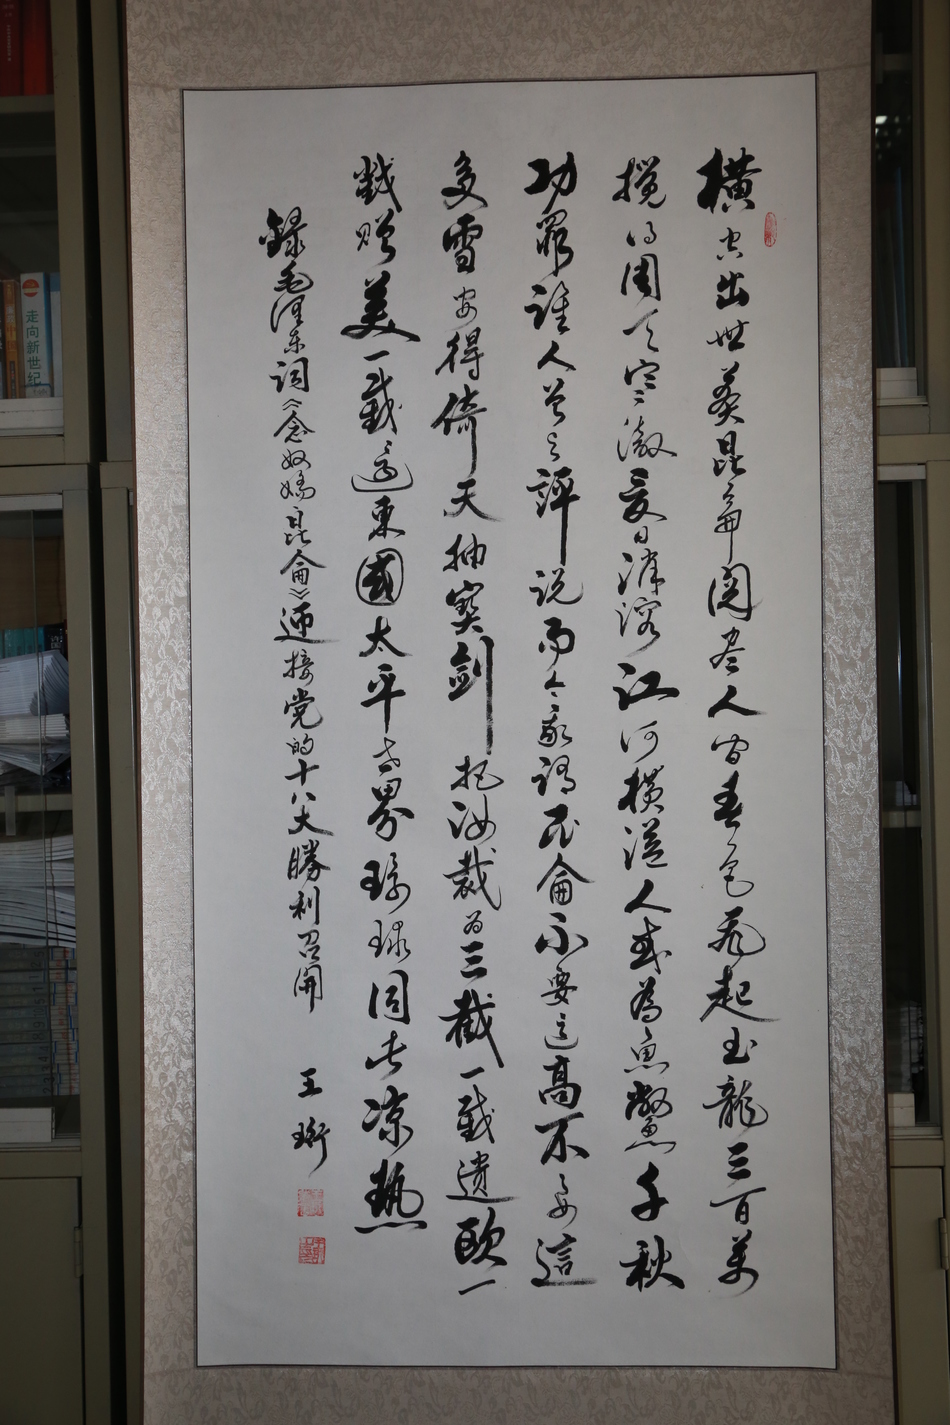 橫空出世莽昆侖阅尽人间春色飛起玉龍三百萬
搅得周天寒澈夏日消溶江河横溢人或為魚鳖千秋
功罪谁人曾之評说而今我谓昆侖不要这高不要這
多雪安得倚天抽寶劍把汝裁为三截一截遺欧一
截赠美一截還東國太平世界环球同此凉熱
録毛泽东词《念奴嬌昆侖》迎接党的十八大勝利召開
王珩
走向新世纪